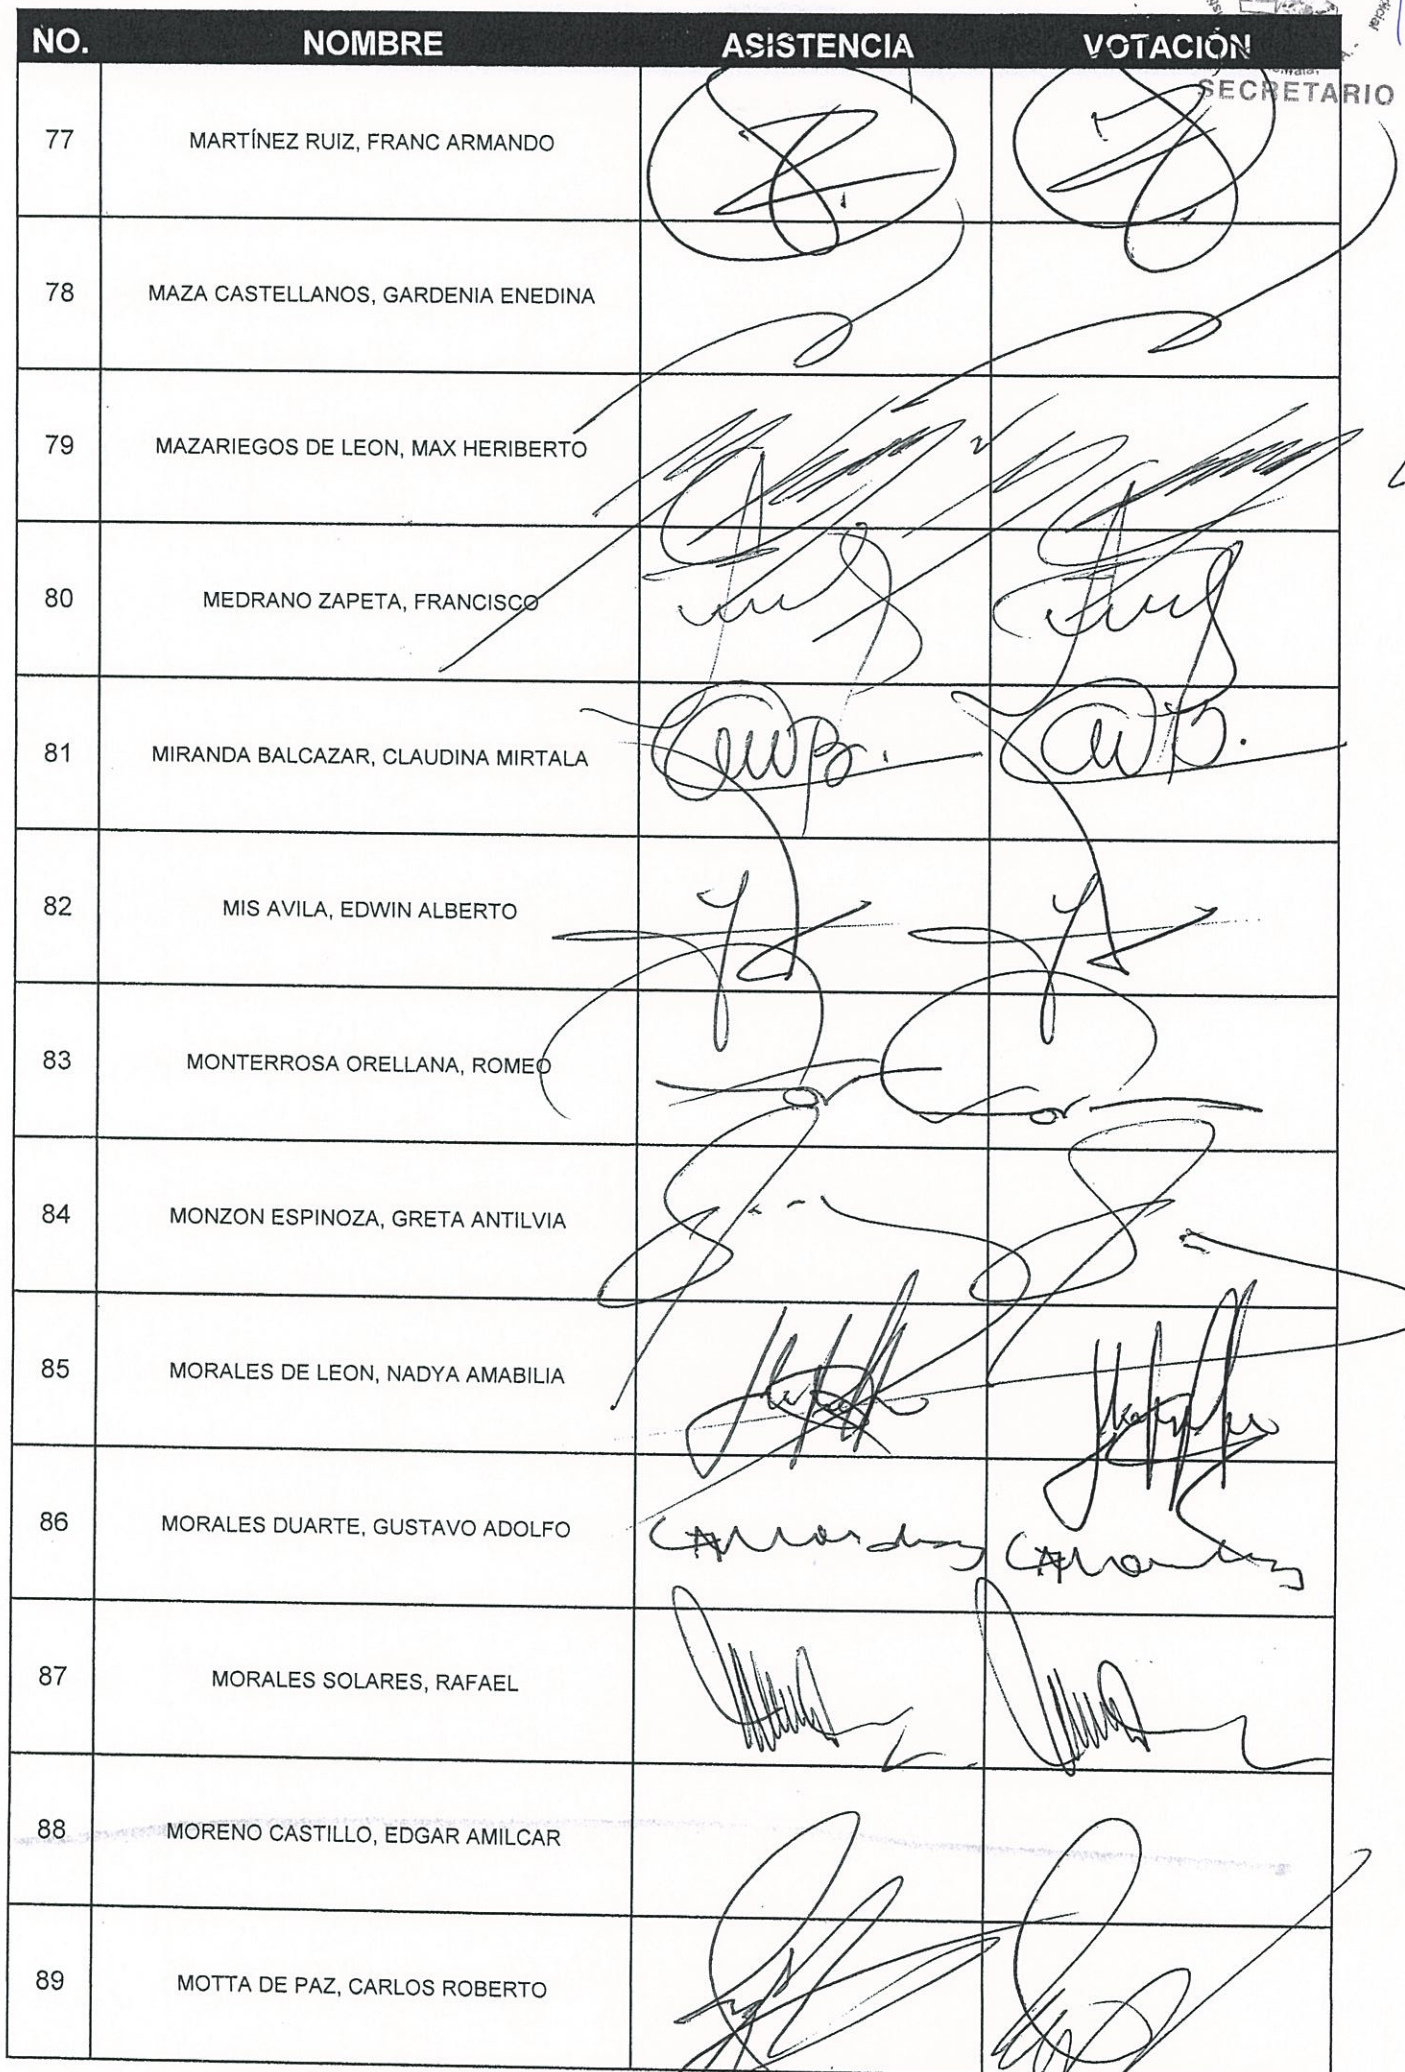 NO. NOMBRE ASISTENCIA VOTACIÓN
SECRETARIO
77 MARTÍNEZ RUIZ, FRANC ARMANDO
78 MAZA CASTELLANOS, GARDENIA ENEDINA
79 MAZARIEGOS DE LEON, MAX HERIBERTO
80 MEDRANO ZAPETA, FRANCISCO
81 MIRANDA BALCAZAR, CLAUDINA MIRTALA
82 MIS AVILA, EDWIN ALBERTO
83 MONTERROSA ORELLANA, ROMEO
84 MONZON ESPINOZA, GRETA ANTILVIA
85 MORALES DE LEON, NADYA AMABILIA
86 MORALES DUARTE, GUSTAVO ADOLFO
87 MORALES SOLARES, RAFAEL
88 MORENO CASTILLO, EDGAR AMILCAR
89 MOTTA DE PAZ, CARLOS ROBERTO